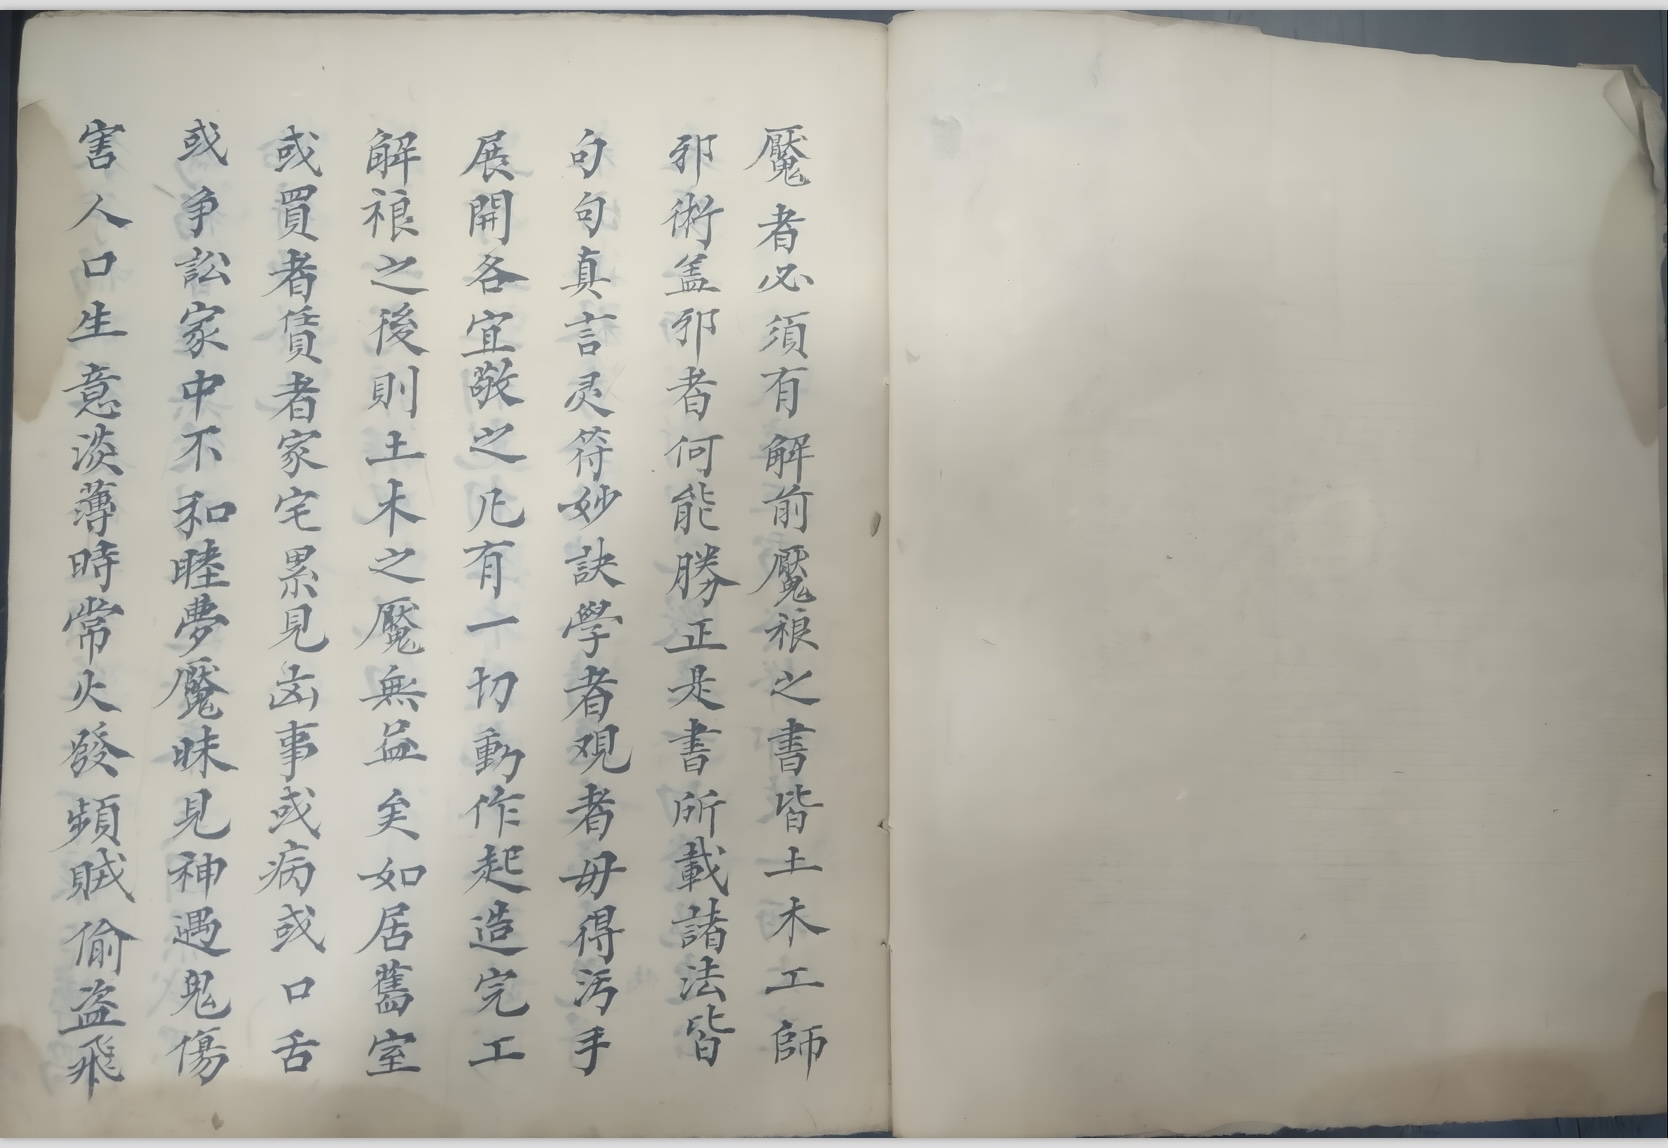 魘者必須有解前魘禳之書皆土木工師
邪術盖邪者何能勝正是書所載諸法皆
句句真言灵符妙訣學者观者毋得汚手
展開各宜敬之凡有一切動作起造完工
解禳之後則土木之魘無益矣如居舊室
或買者賃者家宅累見凶事或病或口舌
或争訟家中不和睦夢魘昧見神遇鬼傷
害人口生意淡薄時常火發頻賊偷盗飛